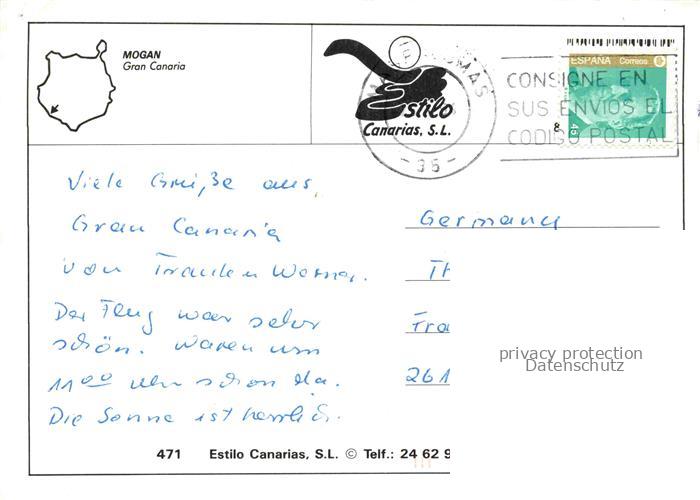 MOGAN
Gran Canaria
Estilo
Canarias, S.L.
PALMAS
- 35 -
ESPAÑA Correos
45
CONSIGNE EN
SUS ENVIOS EL
CODIGO POSTAL
Viele Grüße aus
Gran Canaria
von Frauke u Werner.
Der Flug war sehr
schön. Waren um
11 00 Uhr schon da.
Die Sonne ist herrlich.
Germany
Th
Fra
261
privacy protection
Datenschutz
471 Estilo Canarias, S.L. © Telf.: 24 62 9